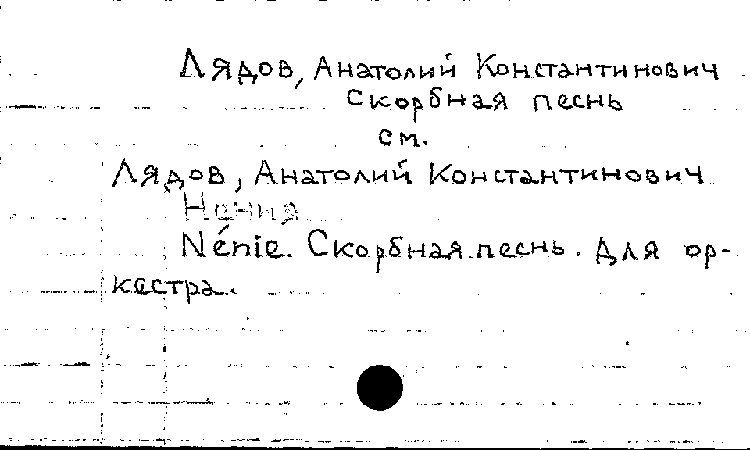 Лядов, Анатолий Константинович
Скорбная песнь
см.
Лядов, Анатолий Константинович
Нения
Nénie. Скорбная песнь. Для ор-
кестра.